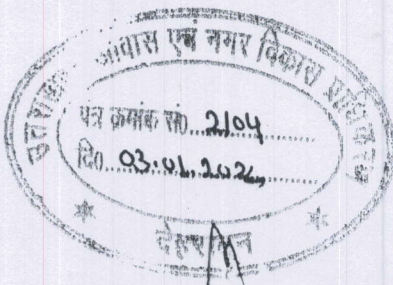 उत्तराखण्ड आवास एवं नगर विकास प्राधिकरण
पत्र क्रमांक सं0 2104
दि0 03.01.202
देहरादून